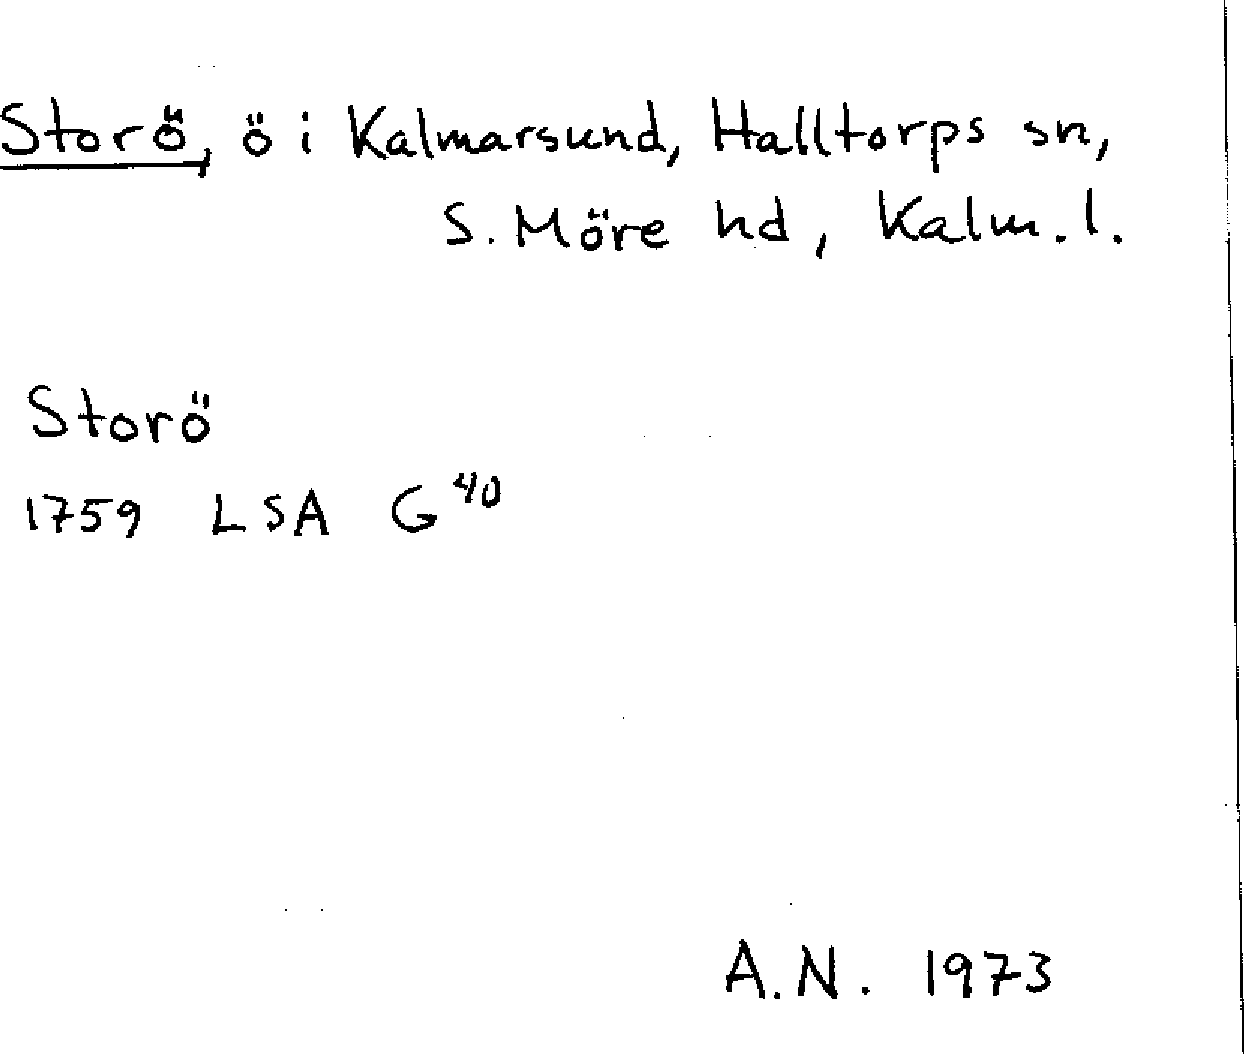 Storö, ö i Kalmarsund, Halltorps sn,
S. Möre hd, Kalm. l.
Storö
1759 LSA G 40
A.N. 1973